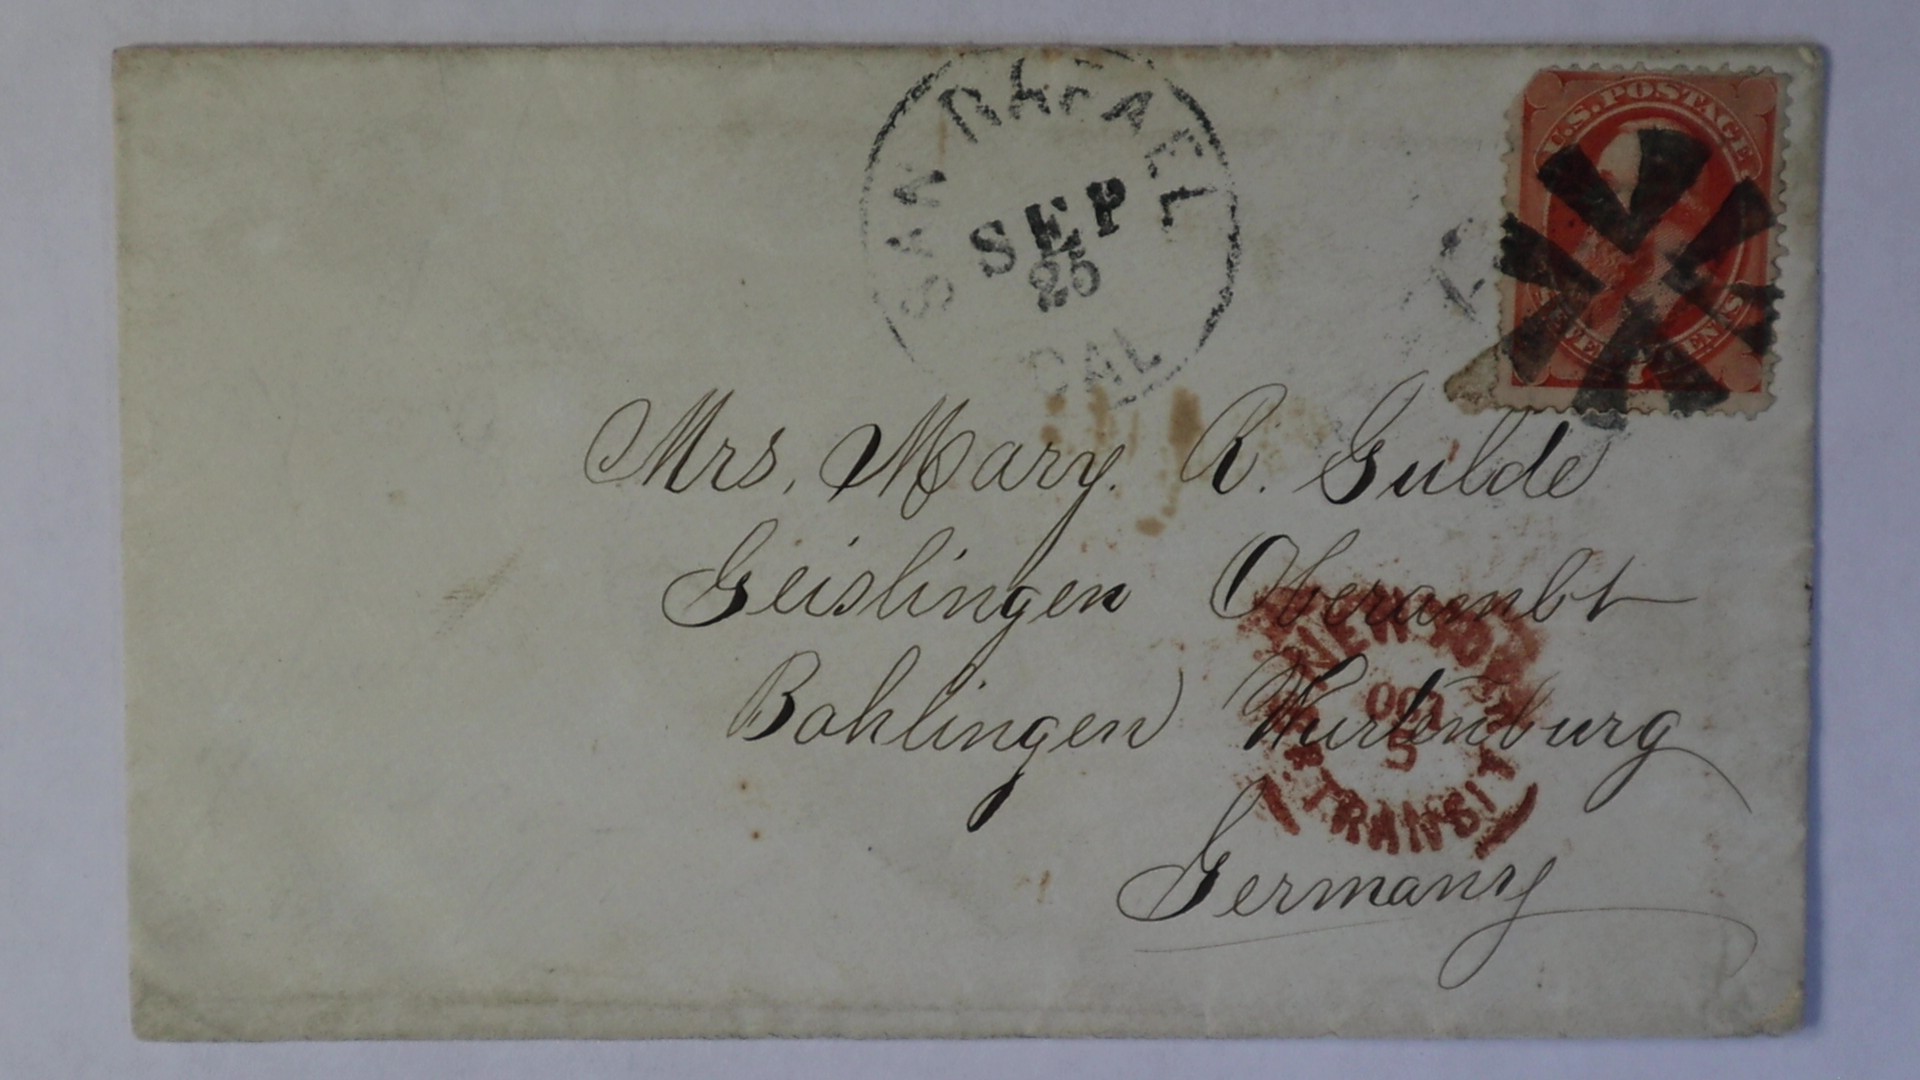 SAN RAFAEL
SEP
25
CAL
U.S. POSTAGE
CENTS
Mrs. Mary. R. Gulde
Geislingen Oberambt
Bahlingen Wurtenburg
Germany
NEW YORK
OCT
5
TRANSIT